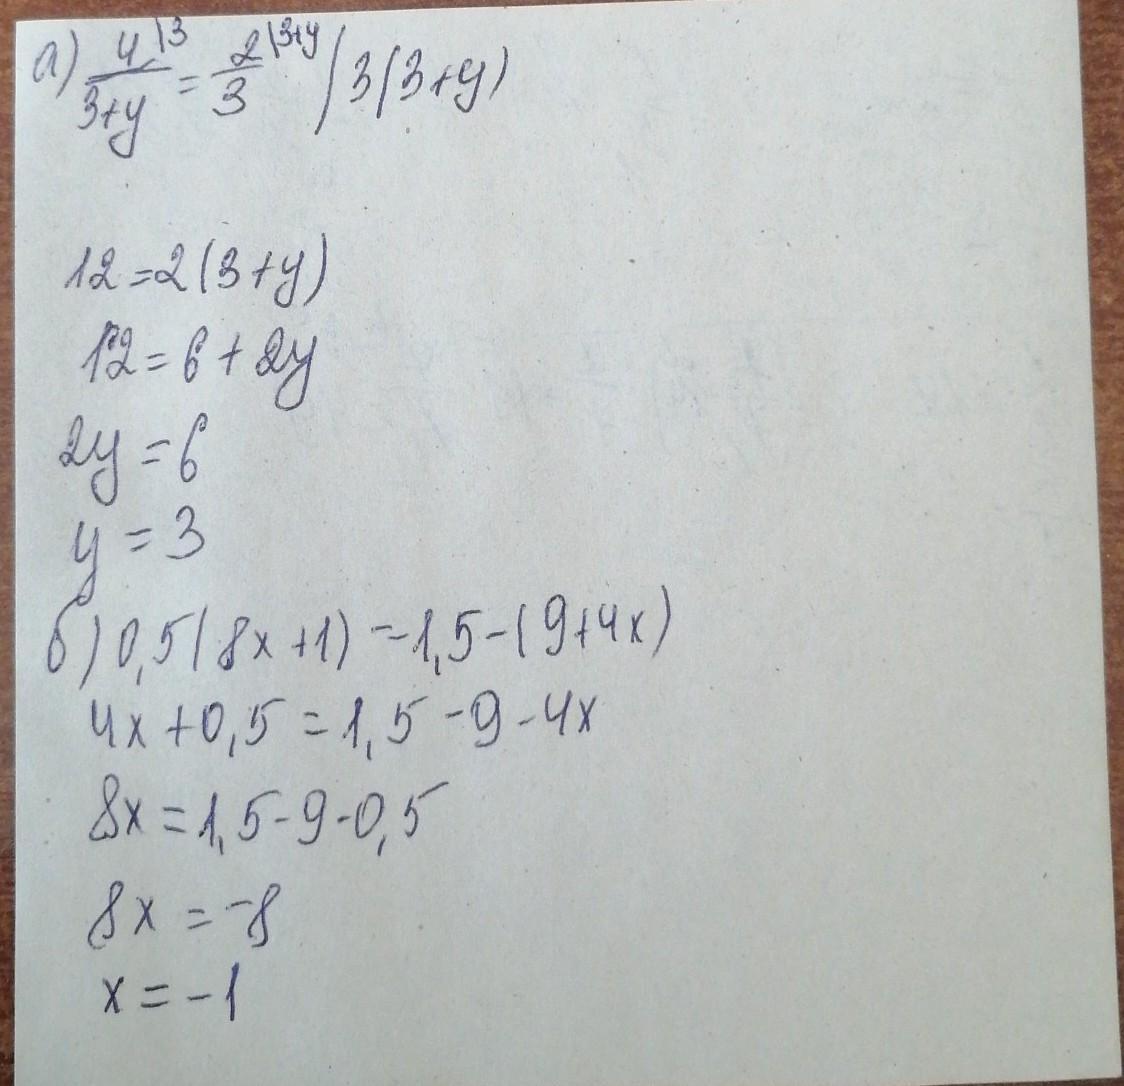 а) 4\3/3+y = 2\3+y/3 | 3(3+y)
12=2(3+y)
12=6+2y
2y=6
y=3
б) 0,5(8x+1)=1,5-(9+4x)
4x+0,5=1,5-9-4x
8x=1,5-9-0,5
8x=-8
x=-1